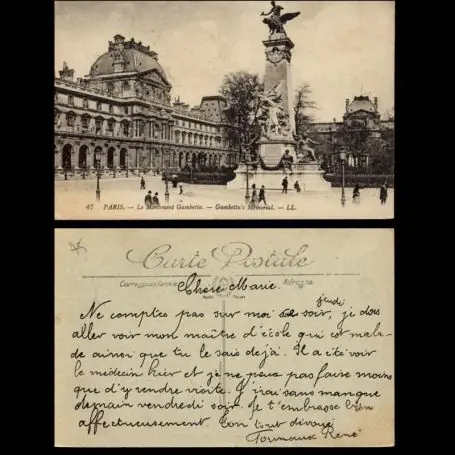 47 PARIS. - Le Monument Gambetta. - Gambetta's Memorial. - LL.
Carte Postale
Correspondance
Adresse
Chère Marie.
jeudi
Ne comptes pas sur moi ce soir, je dois
aller voir mon maître d'école qui est mala-
de ainsi que tu le sais déjà. Il a été voir
le médecin hier et je ne peux pas faire moins
que d'y rendre visite. J'irai sans manque
demain vendredi soir. Je t'embrasse bien
affectueusement. Ton tout dévoué
René